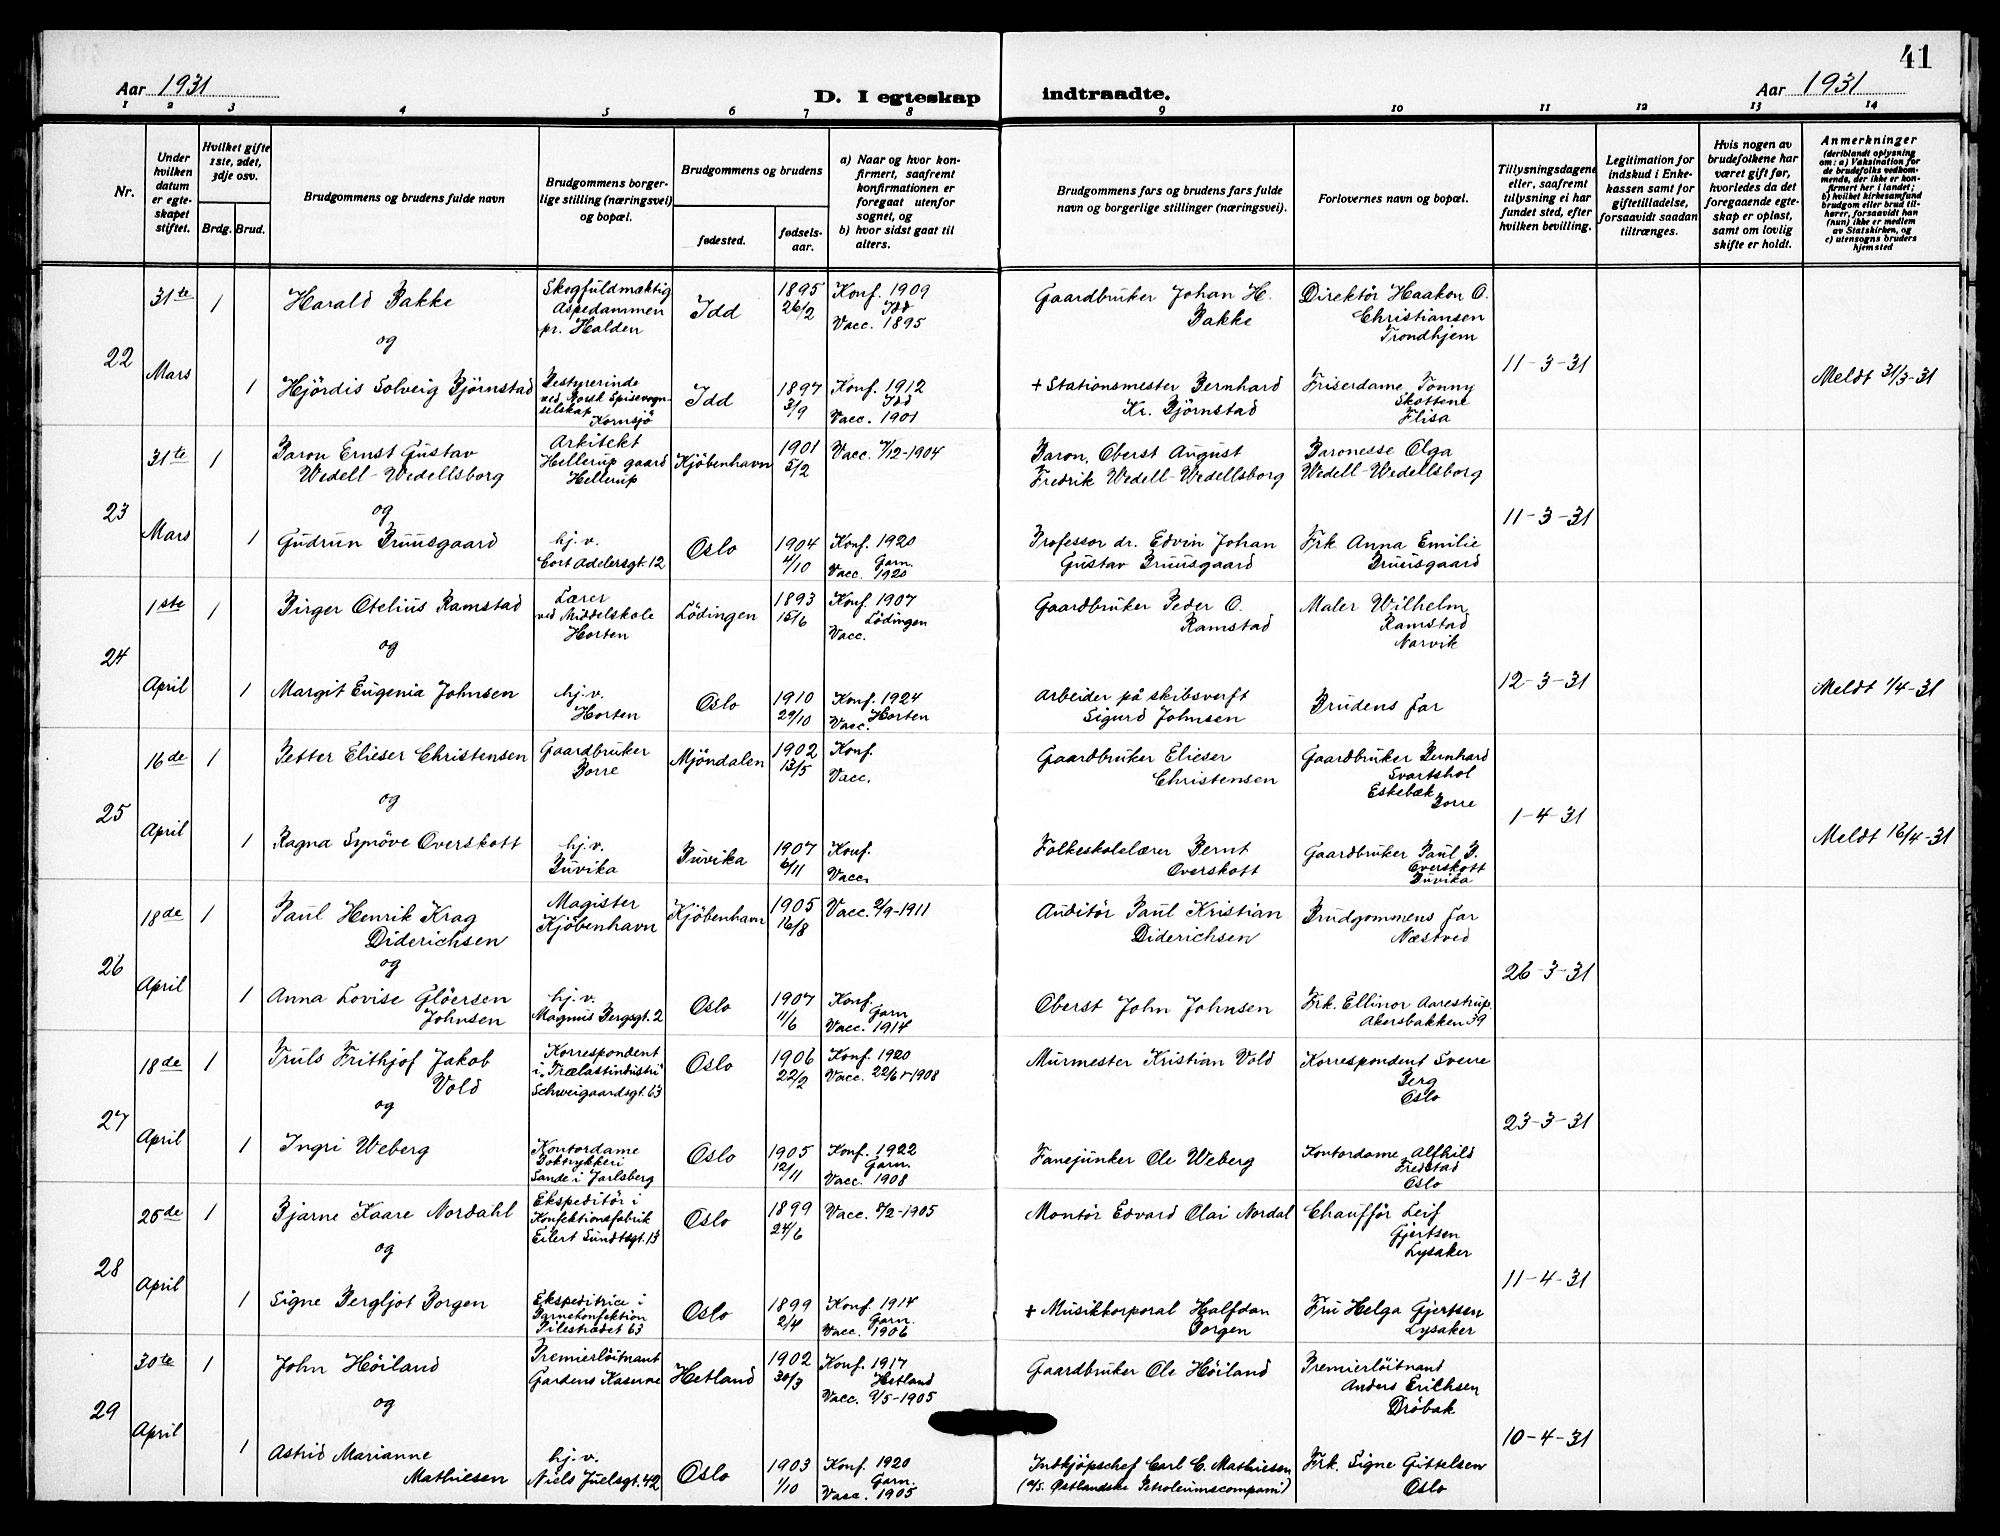 41
Aar 1931
D. I egteskap indtraadte.
Aar 1931
1 2 3 4 5 6 7 8 9 10 11 12 13 14
Nr.
Under hvilken datum er egte-skapet stiftet.
Hvilket gifte 1ste, 2det, 3dje osv.
Brdg. Brud.
Brudgommens og brudens fulde navn
Brudgommens borger-lige stilling (næringsvei) og bopæl.
Brudgommens og brudens
fødested.
fødsels-aar.
a) Naar og hvor kon-firmert, saafremt konfirmationen er foregaat utenfor sognet, og
b) hvor sidst gaat til alters.
Brudgommens fars og brudens fars fulde navn og borgerlige stillinger (næringsvei).
Forlovernes navn og bopæl.
Tillysningsdagene eller, saafremt tillysning ei har fundet sted, efter hvilken bevilling.
Legitimation for indskud i Enke-kassen samt for giftetilladelse, forsaavidt saadan tiltrænges.
Hvis nogen av brudefolkene har været gift før, hvorledes da det foregaaende egte-skap er opløst, samt om lovlig skifte er holdt.
Anmerkninger
(deriblandt oplysning om: a) Vaksination for de brudefolks vedkom-mende, der ikke er kon-firmert her i landet; b) hvilket kirkesamfund brudgom eller brud til-hører, forsaavidt han (hun) ikke er medlem av Statskirken, og c) utensogns bruders hjemsted
22
31te Mars
1
Harald Bakke
Skogfuldmægtig
Aspedammen
pr. Halden
Idd
1895
26/2
Konf. 1909
Idd
Vacc. 1895
Gaardbruker Johan H.
Bakke
Direktör Haakon O.
Christiansen
Trondhjem
11-3-31
og
1
Hjördis Solveig Bjørnstad
Bestyrerinde
ved Norsk Spisevogn-
selskap
Kornsjö
Idd
1897
3/9
Konf. 1912
Idd
Vacc. 1901
+ Stationsmester Bernhard
Kr. Bjørnstad
Friserdame Tonny
Skottene
Flisa
Meldt 31/3-31
23
31te Mars
1
Baron Ernst Gustav
Wedell-Wedellsborg
Arkitekt
Hellerup gaard
Hellerup
Kjöbenhavn
1901
5/2
Vacc. 7/12-1904
Baron, Oberst August
Fredrik Wedell-Wedellsborg
Baronesse Olga
Wedell-Wedellsborg
11-3-31
og
1
Gudrun Bruusgaard
hj.v.
Cort Adelersgt. 12
Oslo
1904
4/10
Konf. 1920
Garn.
Vacc. 1920
Professor dr. Edvin Johan
Gustav Bruusgaard
Frk Anna Emilie
Bruusgaard
24
1ste April
1
Birger Otelius Ramstad
Lærer
ved Middelskole
Horten
Lödingen
1893
15/6
Konf. 1907
Lödingen
Vacc.
Gaardbruker Peder O.
Ramstad
Maler Wilhelm
Ramstad
Narvik
12-3-31
og
1
Margit Eugenia Johnsen
hj.v.
Horten
Oslo
1910
29/10
Konf. 1924
Horten
Vacc.
Arbeider på skibsverft
Sigurd Johnsen
Brudens far
Meldt 1/4-31
25
16de April
1
Petter Elieser Christensen
Gaardbruker
Borre
Mjöndalen
1902
13/5
Konf.
Vacc.
Gaardbruker Elieser
Christensen
Gaardbruker Bernhard
Svartshol
Eskebæk
Borre
1-4-31
og
1
Ragna Synöve Overskott
hj.v.
Buvika
Buvika
1907
6/11
Konf.
Vacc.
Folkeskolelærer Bernt
Overskott
Gaardbruker Paul B.
Overskott
Buvika
Meldt 16/4-31
26
18de April
1
Paul Henrik Krag
Diderichsen
Magister
Kjöbenhavn
Kjöbenhavn
1905
16/8
Vacc. 2/9-1911
Auditör Paul Kristian
Diderichsen
Brudgommens far
Næstved
26-3-31
og
1
Anna Lovise Glöersen
Johnsen
hj.v.
Magnus Bergsgt. 2
Oslo
1907
11/6
Konf.
Garn
Vacc. 1914
Oberst John Johnsen
Frk. Ellinor Aarestrup
Akersbakken 39
27
18de April
1
Truls Frithjof Jakob
Vold
Korrespondent
i "Trælastindustri"
Schweigaardsgt. 63
Oslo
1906
22/2
Konf. 1920
Vacc. 22/6-1908
Murmester Kristian Vold
Korrespondent Sverre
Berg
Oslo
23-3-31
og
1
Ingri Weberg
Kontordame
Boktrykkeri
Sande i Jarlsberg
Oslo
1905
12/11
Konf. 1922
Garn.
Vacc. 1908
Fanejunker Ole Weberg
Kontordame Alfhild
Fredstad
Oslo
28
25de April
1
Bjarne Kaare Nordahl
Ekspeditör i
Konfektionsfabrik
Eilert Sundtsgt. 13
Oslo
1899
24/6
Vacc. 8/2-1905
Montör Edvard Olai Nordal
Chaufför Leif
Gjertsen
Lysaker
11-4-31
og
1
Signe Bergljot Borgen
Ekspeditrice i
Barnekonfektion
Pilestrædet 63
Oslo
1899
2/4
Konf. 1914
Garn.
Vacc. 1906
+ Musikkorporal Halfdan
Borgen
Fru Helga Gjertsen
Lysaker
29
30te April
1
John Höiland
Premierlöitnant
Gardens Kaserne
Hetland
1902
30/3
Konf. 1917
Hetland
Vacc. 9/5-1905
Gaardbruker Ole Höiland
Premierlöitnand
Anders Erichsen
Dröbak
10-4-31
og
1
Astrid Marianne
Mathiesen
hj.v.
Niels Juelsgt. 42
Oslo
1903
1/10
Konf. 1920
Garn.
Vacc. 1905
Indkjöpschef Carl C. Mathiesen
(A/S. Østlandske Petroleumscompani)
Frk. Signe Gittelsen
Oslo